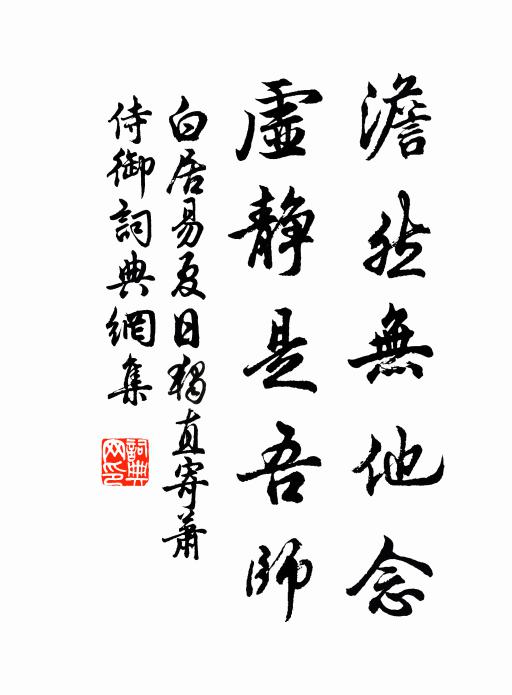 澹然無他念
虛靜是吾師
白居易夏日獨直寄蕭
侍御詞典網集
詞典
网印